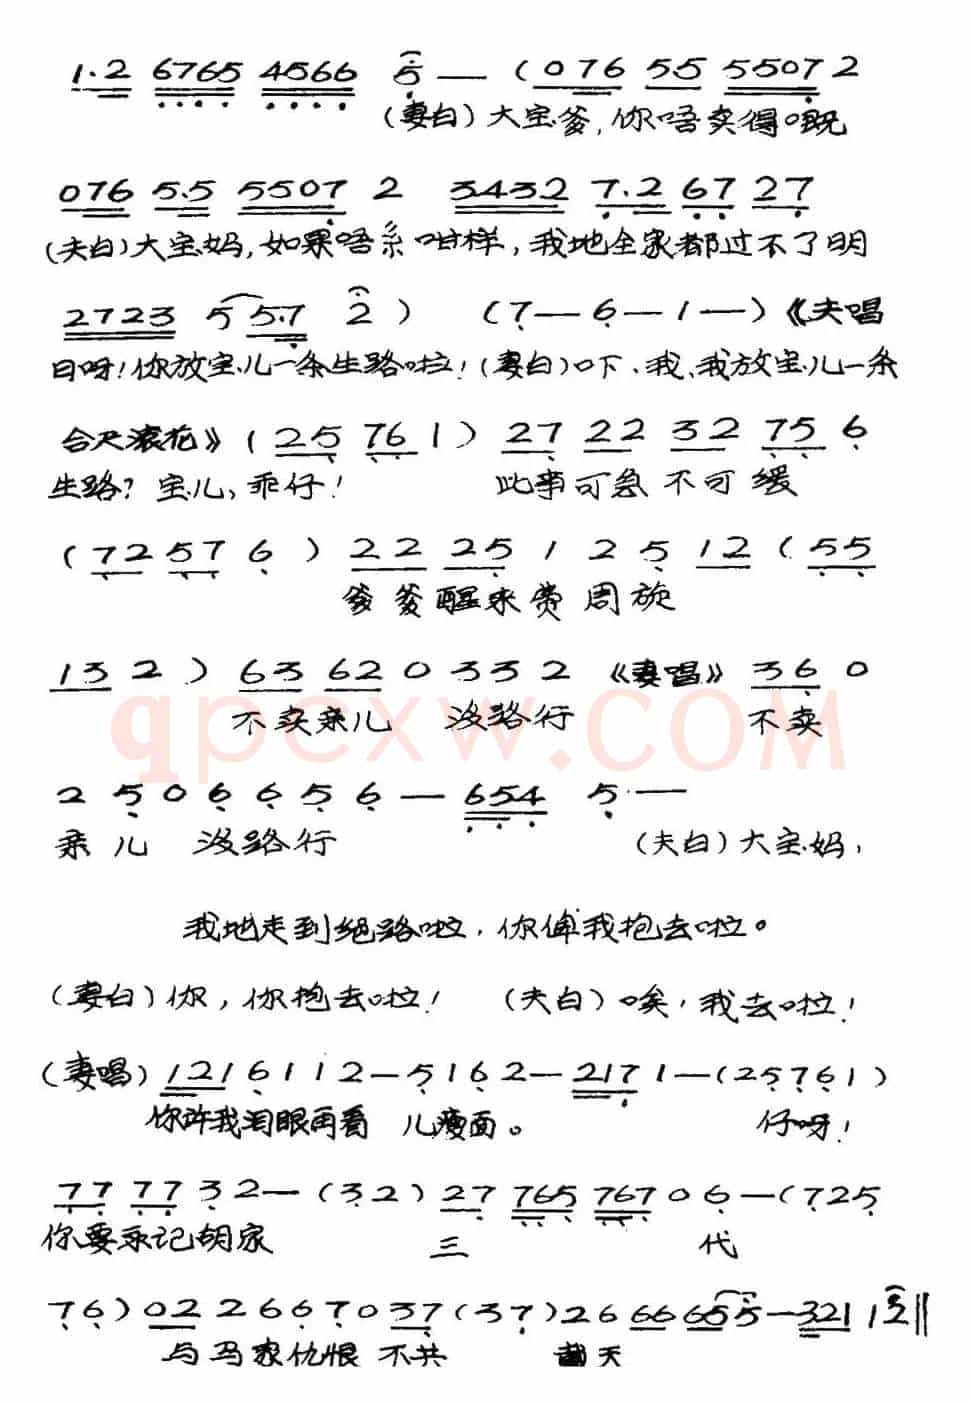 1·2 6765 4566 5 — (076 55 55072
(妻白)大宝爹,你唔卖得嘅
076 5·5 5507 2 3432 7·2 67 27
(夫白)大宝妈,如果唔系咁样,我地全家都过不了明
2723 5 5·7 2 ) (7—6—1—)《夫唱
日呀!你放宝儿一条生路啦!(妻白)吓、我、我放宝儿一条
合尺滚花》(25 76 1) 27 22 32 75 6
生路?宝儿,乖仔! 此事可急不可缓
(72 57 6 ) 22 25 1 2 5 12 (55
爹爹醒来费周旋
13 2 ) 63 62 0 3 3 2 《妻唱》 36 0
不卖亲儿 没路行 不卖
qpcxw.COM
2 5 0 6 6 5 6 — 654 5 —
亲儿 没路行 (夫白)大宝妈,
我地走到绝路啦,你俾我抱去啦。
(妻白)你,你抱去啦! (夫白)唉,我去啦!
(妻唱) 121 6 1 1 2 — 5 1 6 2 — 217 1 — (2 5 7 6 1)
你许我泪眼再看 儿瘦面。 仔呀!
77 77 3 2 — (3 2) 27 765 767 0 6 — (7 2 5
你要永记胡家 三 代
7 6) 02 2 6 6 7 0 37 (3 7) 2 6 66 65 5 — 321 1 2 ‖
与马家仇恨 不共 戴天